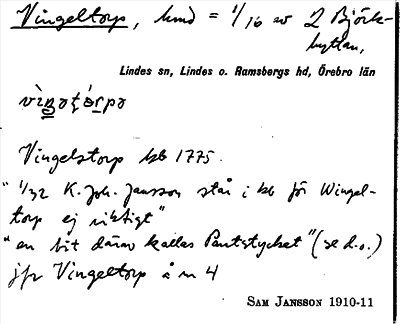 Vingeltorp, hmd = 1/16 av 2 Björk-
hyttan,
Lindes sn, Lindes o. Ramsbergs hd, Örebro län
Vingelstorp kb 1775.
"1/32 K. Joh. Jansson står i kb för Wingel-
torp ej riktigt"
"en bit därav kallas Pantstycket" (se d.o.)
jfr Vingeltorp å n 4
SAM JANSSON 1910-11